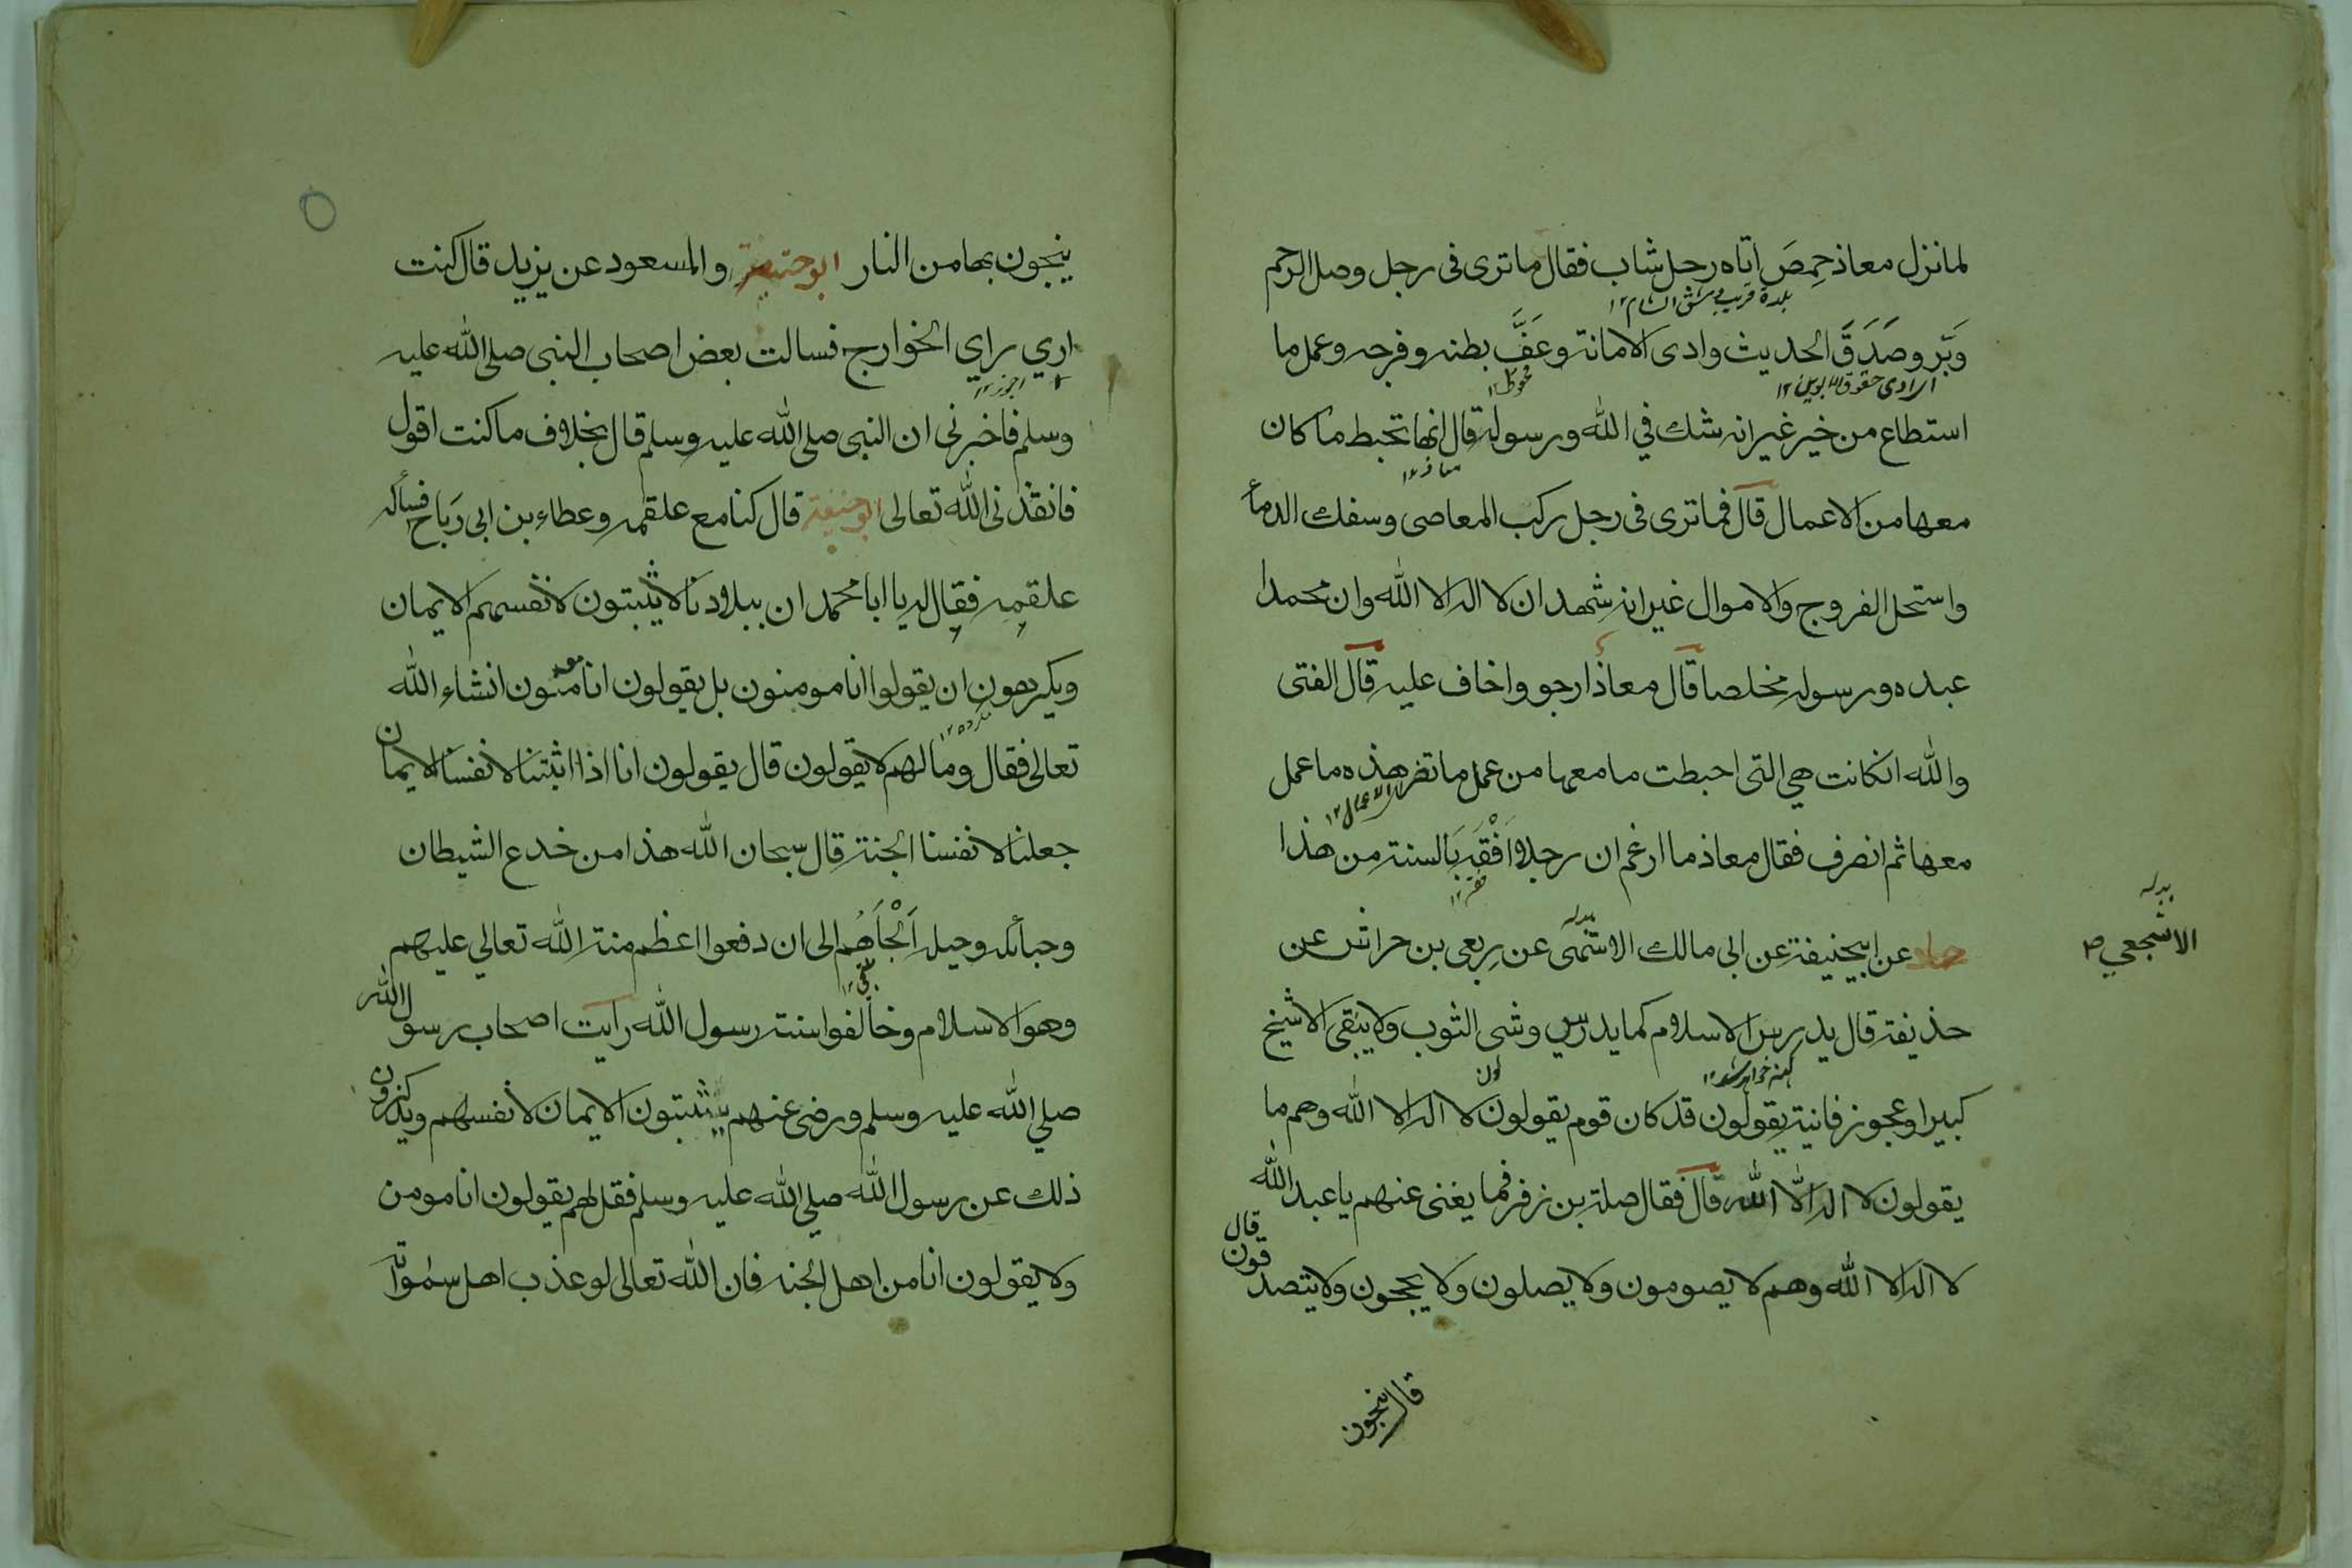 لما نزل معاذ حِمصَ اتاه رجل شاب فقال ما ترى فى رجل وصل الرحم
بلدة قريب دمشق الشام ١٢
وبَّر وصَدَقَ الحديث وادى الامانة وعَفَّ بطنه وفرجه وعمل ما
اى ادى حقوق الابوين ١٢
محفوظ ١٢
استطاع من خير غير انه شك في الله ورسوله قال انها تحبط ما كان
معاذ ١٢
معها من الاعمال قال فما ترى فى رجل ركب المعاصى وسفك الدماء
واستحل الفروج والاموال غير انه شهد ان لا اله الا الله وان محمدا
عبده ورسوله مخلصا قال معاذ ارجو واخاف عليه قال الفتى
والله انكانت هي التى احبطت ما معها من عمل ما تضر هذه ما عمل
الاعمال ١٢
معها ثم انصرف فقال معاذ ما ازعم ان رجلا اَفْقَهَ بَالسنة من هذا
حماد عن ابيحنيفة عن ابى مالك الاشجعى عن ربعى بن حراش عن
بدله
الاشجعي ص
حذيفة قال يدرس الاسلام كما يدرس وشى الثوب ولا يبقى الا شيخ
كهنه خواهد شد ١٢
لون
كبير او عجوز فانية يقولون قد كان قوم يقولون لا اله الا الله وهم ما
يقولون لا اله الّا الله قال فقال صلة بن زفر فما يغنى عنهم يا عبد الله
لا اله الا الله وهم لا يصومون ولا يصلون ولا يحجون ولا يتصدقون قال
قال ينجون
ينجون بها من النار ابو حنيفة والمسعود عن يزيد قال كنت
ارى براي الخوارج فسالت بعض اصحاب النبى صلى الله عليه
وسلم فاخبرنى ان النبى صلى الله عليه وسلم قال بخلاف ما كنت اقول
فانقذنى الله تعالى ابو حنيفة قال كنا مع علقمه وعطاء بن ابى رَباح فسأله
علقمه فقال له يا ابا محمد ان ببلادنا لا يثبتون لانفسهم الايمان
ويكرهون ان يقولوا انا مومنون بل يقولون انا مومنون انشاء الله
تعالى فقال وما لهم لا يقولون قال يقولون انا اذا اثبتنا لانفسنا الايمان
جعلنا لانفسنا الجنة قال سبحان الله هذا من خدع الشيطان
وحبائله وحيله اَلْجَاَهُم الى ان دفعوا اعظم منة الله تعالي عليهم
وهو الاسلام وخالفوا سنة رسول الله رايت اصحاب رسول الله
صلي الله عليه وسلم ورضى عنهم يثبتون الايمان لانفسهم ويذكرون
ذلك عن رسول الله صلي الله عليه وسلم فقل لهم يقولون انا مومن
ولا يقولون انا من اهل الجنه فان الله تعالى لو عذب اهل سمواته